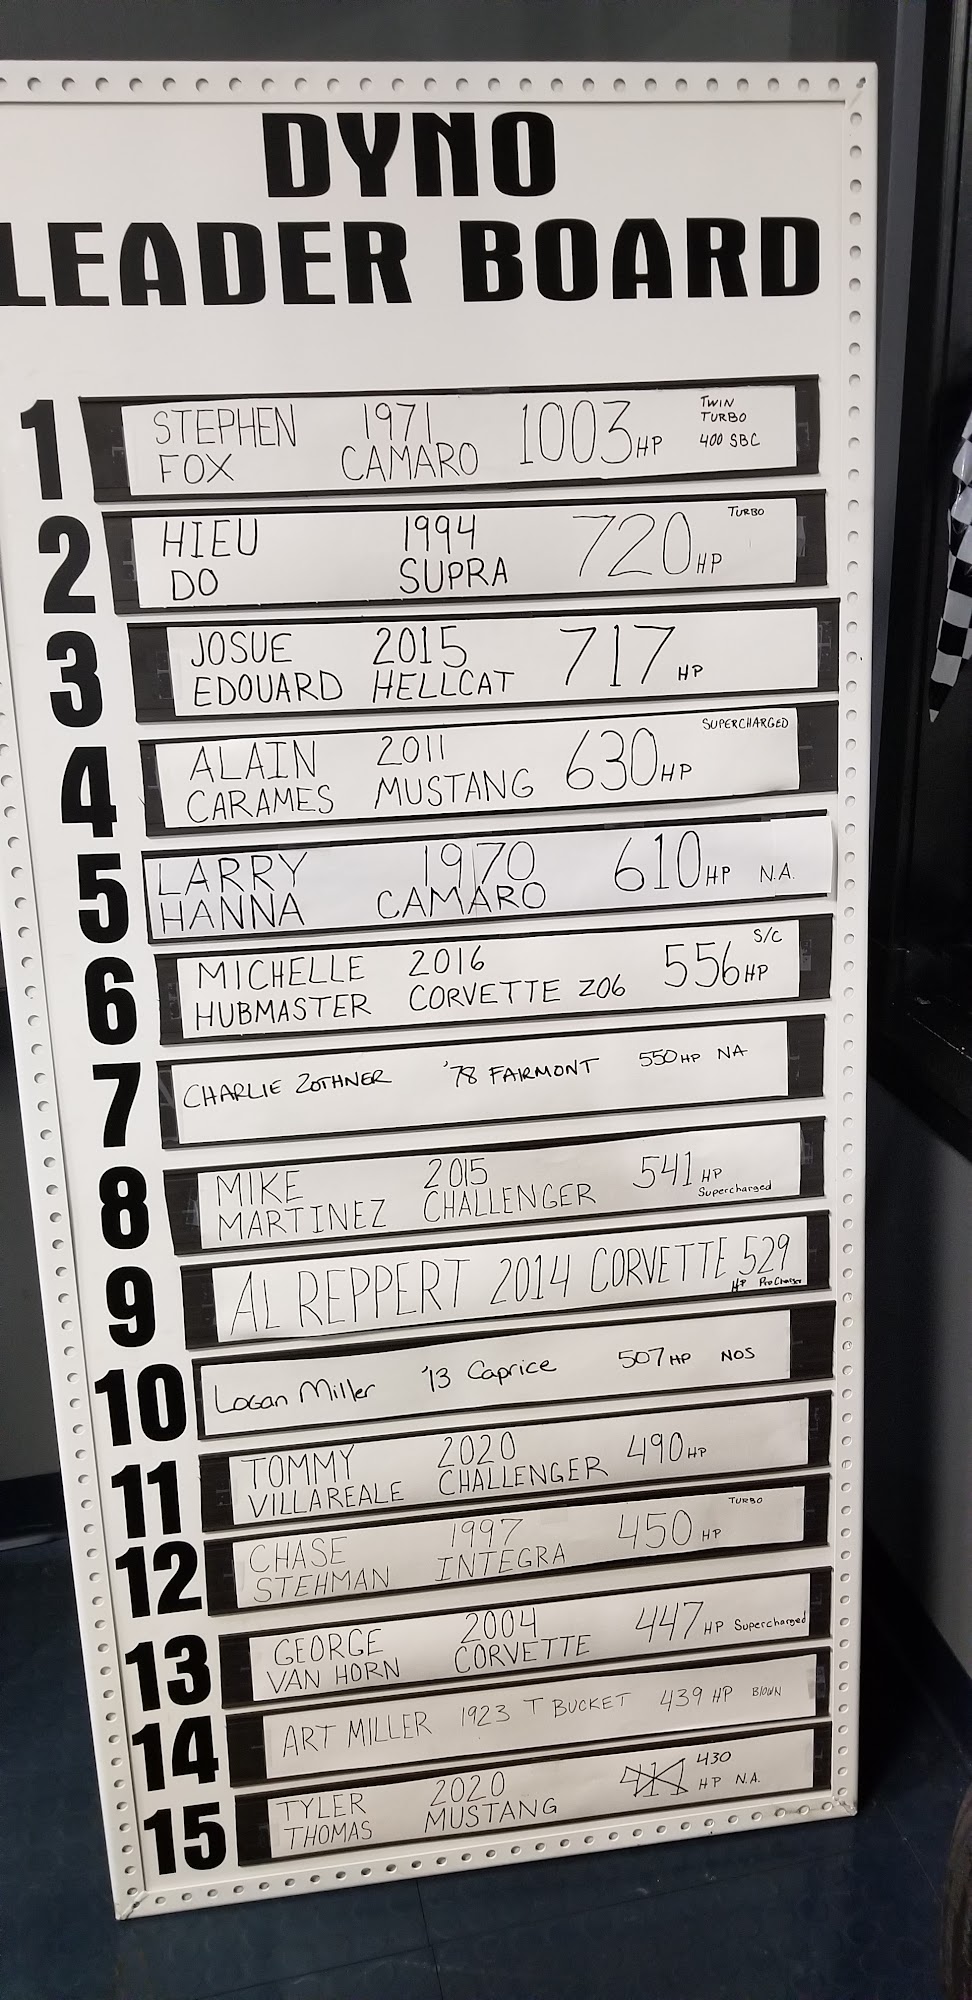 DYNO
LEADER BOARD
1 STEPHEN FOX 1971 CAMARO 1003 HP TWIN TURBO 400 SBC
2 HIEU DO 1994 SUPRA 720 HP TURBO
3 JOSUE EDOUARD 2015 HELLCAT 717 HP
4 ALAIN CARAMES 2011 MUSTANG 630 HP SUPERCHARGED
5 LARRY HANNA 1970 CAMARO 610 HP N.A.
6 MICHELLE HUBMASTER 2016 CORVETTE Z06 556 HP S/C
7 CHARLIE ZOTHNER '78 FAIRMONT 550 HP NA
8 MIKE MARTINEZ 2015 CHALLENGER 541 HP Supercharged
9 AL REPPERT 2014 CORVETTE 529 HP ProCharger
10 Logan Miller '13 Caprice 507 HP NOS
11 TOMMY VILLAREALE 2020 CHALLENGER 490 HP
12 CHASE STEHMAN 1997 INTEGRA 450 HP TURBO
13 GEORGE VAN HORN 2004 CORVETTE 447 HP Supercharged
14 ART MILLER 1923 T BUCKET 439 HP Blown
15 TYLER THOMAS 2020 MUSTANG 430 HP N.A.